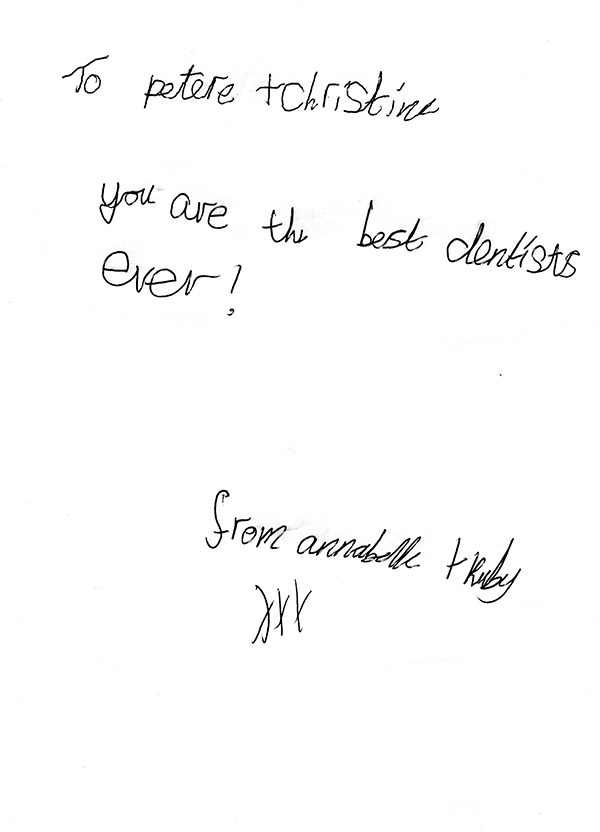 To petere + christine
you are the best dentists
ever!
from annabelle + Ruby
xxx